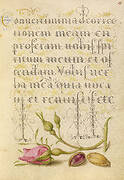 Convertimini ad correp
tionem meam en
proferam vobis spi
ritum meum et os
tendam Vobis ver
ba mea quia voca
vi et renuistis